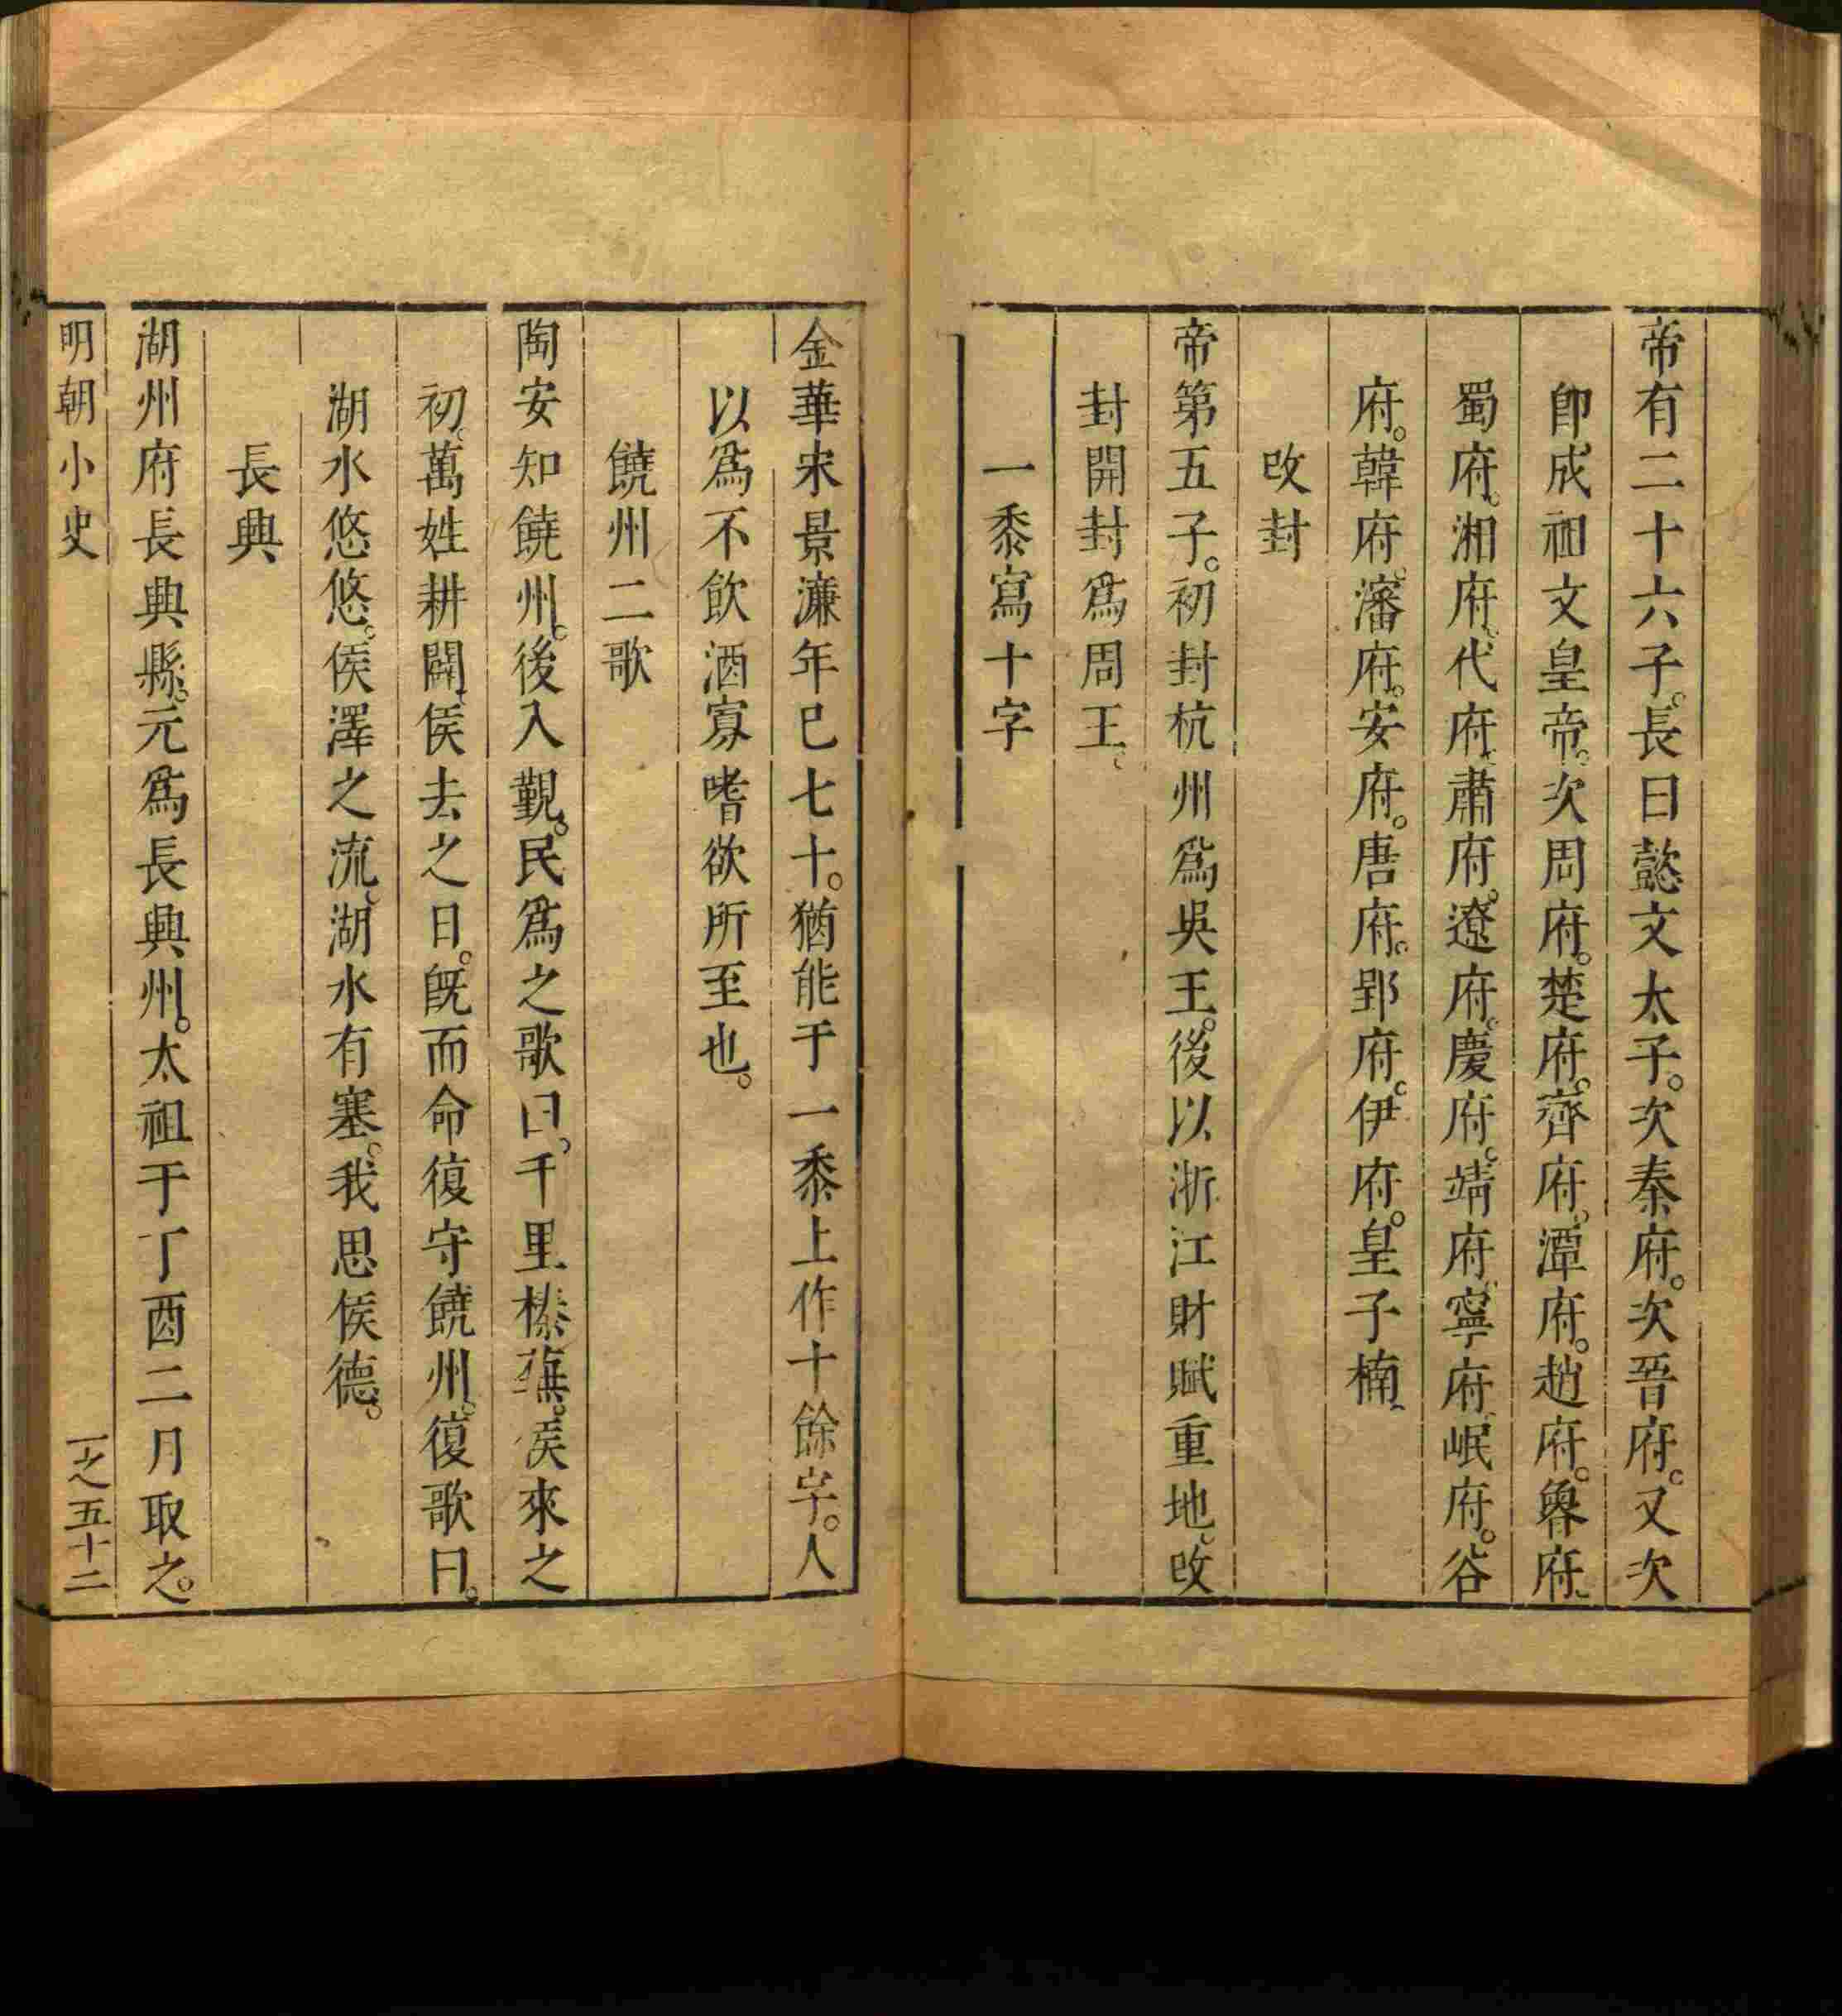 帝有二十六子。長曰懿文太子。次秦府。次晉府。又次
卽成祖文皇帝。次周府。楚府。齊府。潭府。趙府。魯府。
蜀府。湘府。代府。肅府。遼府。慶府。靖府。寧府。岷府。谷
府。韓府。瀋府。安府。唐府。郢府。伊府。皇子楠。
改封
帝第五子。初封杭州爲吳王。後以浙江財賦重地。改
封開封爲周王。
一黍寫十字
金華宋景濂年已七十。猶能于一黍上作十餘字。人
以爲不飲酒寡嗜欲所至也。
饒州二歌
陶安知饒州。後入覲。民爲之歌曰。千里榛蕪。侯來之
初。萬姓耕闢。侯去之日。旣而命復守饒州。復歌曰。
湖水悠悠。侯澤之流。湖水有塞。我思侯德。
長興
湖州府長興縣。元爲長興州。太祖于丁酉二月取之。
明朝小史 一之五十二